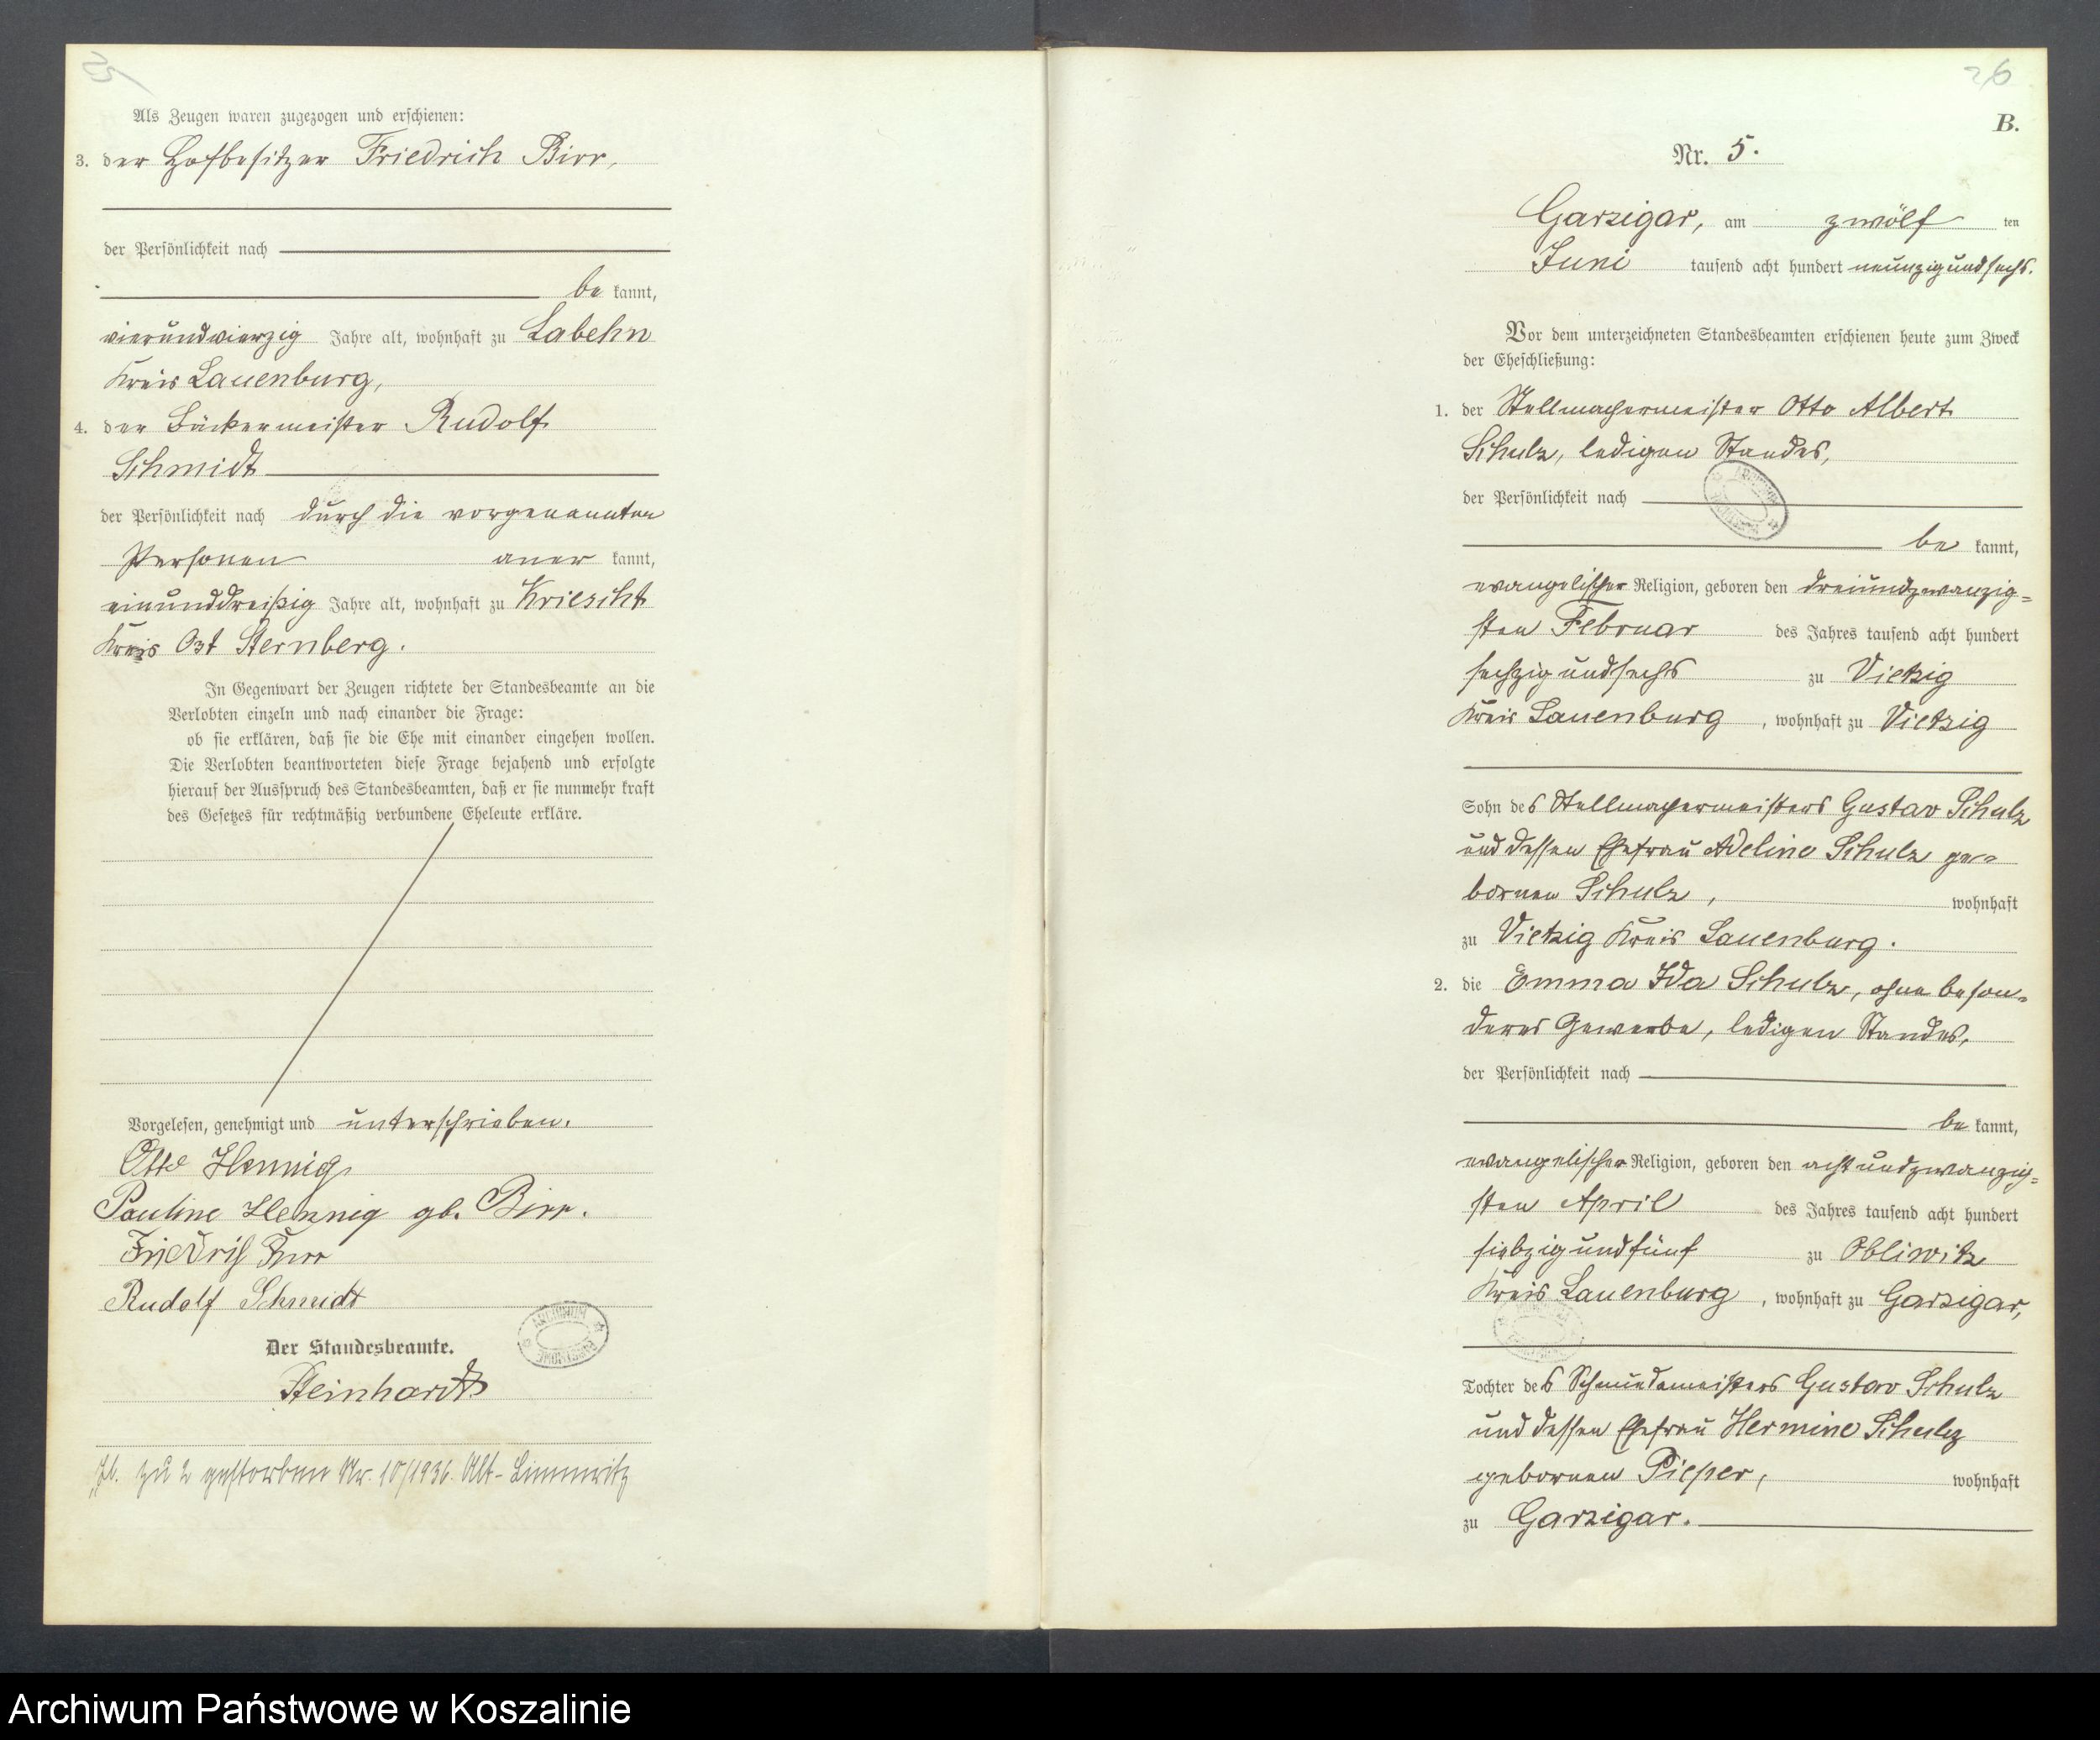 25
Als Zeugen waren zugezogen und erschienen:
3. der Hofbesitzer Friedrich Birr,
der Persönlichkeit nach
be kannt,
vierundvierzig Jahre alt, wohnhaft zu Labehn
Kreis Lauenburg,
4. der Bäckermeister Rudolf
Schmidt
der Persönlichkeit nach durch die vorgenannten
Personen aner kannt,
einunddreißig Jahre alt, wohnhaft zu Kriescht
Kreis Ost Sternberg.
In Gegenwart der Zeugen richtete der Standesbeamte an die
Verlobten einzeln und nach einander die Frage:
ob sie erklären, daß sie die Ehe mit einander eingehen wollen.
Die Verlobten beantworteten diese Frage bejahend und erfolgte
hierauf der Ausspruch des Standesbeamten, daß er sie nunmehr kraft
des Gesetzes für rechtmäßig verbundene Eheleute erkläre.
Vorgelesen, genehmigt und unterschrieben.
Otto Hennig
Pauline Hennig gb. Birr.
Friedrich Birr
Rudolf Schmidt
Der Standesbeamte.
Steinhardt
zu 2 gestorben Nr. 10/1936. Alt-Limmritz
26
B.
Nr. 5.
Garzigar, am zwölf ten
Juni tausend acht hundert neunzigundsechs.
Vor dem unterzeichneten Standesbeamten erschienen heute zum Zweck
der Eheschließung:
1. der Stellmachermeister Otto Albert
Schulz, ledigen Standes,
der Persönlichkeit nach
be kannt,
evangelischer Religion, geboren den dreiundzwanzig=
sten Februar des Jahres tausend acht hundert
sechzigundsechs zu Vietzig
Kreis Lauenburg, wohnhaft zu Vietzig
Sohn des Stellmachermeisters Gustav Schulz
und dessen Ehefrau Adeline Schulz ge=
bornen Schulz, wohnhaft
zu Vietzig Kreis Lauenburg.
2. die Emma Ida Schulz, ohne beson=
deres Gewerbe, ledigen Standes,
der Persönlichkeit nach
be kannt,
evangelischer Religion, geboren den achtundzwanzig=
sten April des Jahres tausend acht hundert
siebzigundfünf zu Obliwitz
Kreis Lauenburg, wohnhaft zu Garzigar,
Tochter des Schmiedemeisters Gustav Schulz
und dessen Ehefrau Hermine Schulz
gebornen Pieper, wohnhaft
zu Garzigar.
Archiwum Państwowe w Koszalinie